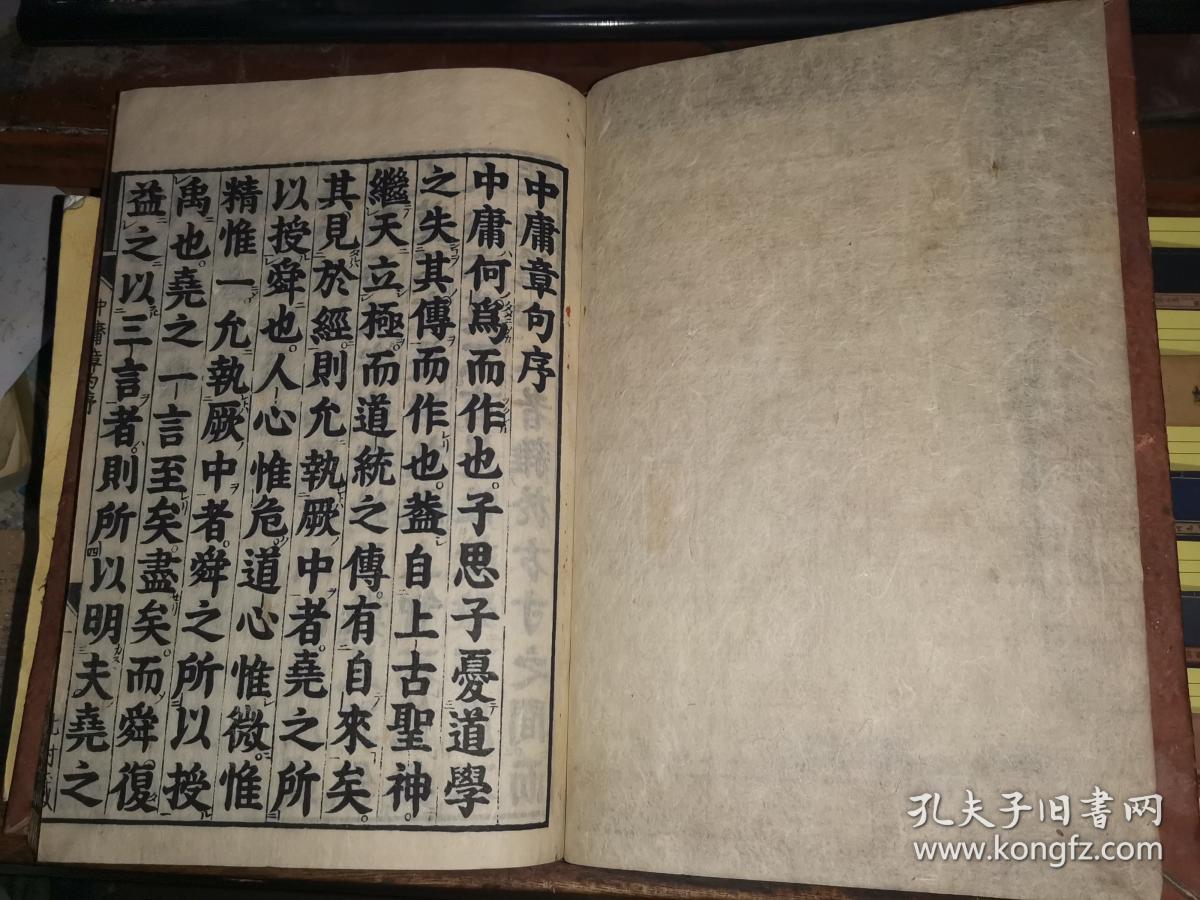 中庸章句序
中庸何爲而作也。子思子憂道學
之失其傳而作也。蓋自上古聖神
繼天立極而道統之傳有自來矣
其見於經則允執厥中者堯之所
以授舜也。人心惟危。道心惟微。惟
精惟一允執厥中者。舜之所以授
禹也。堯之一言至矣。盡矣。而舜復
益之以三言者。則所以明夫堯之
中庸章句序
孔夫子旧书网
www.kongfz.com